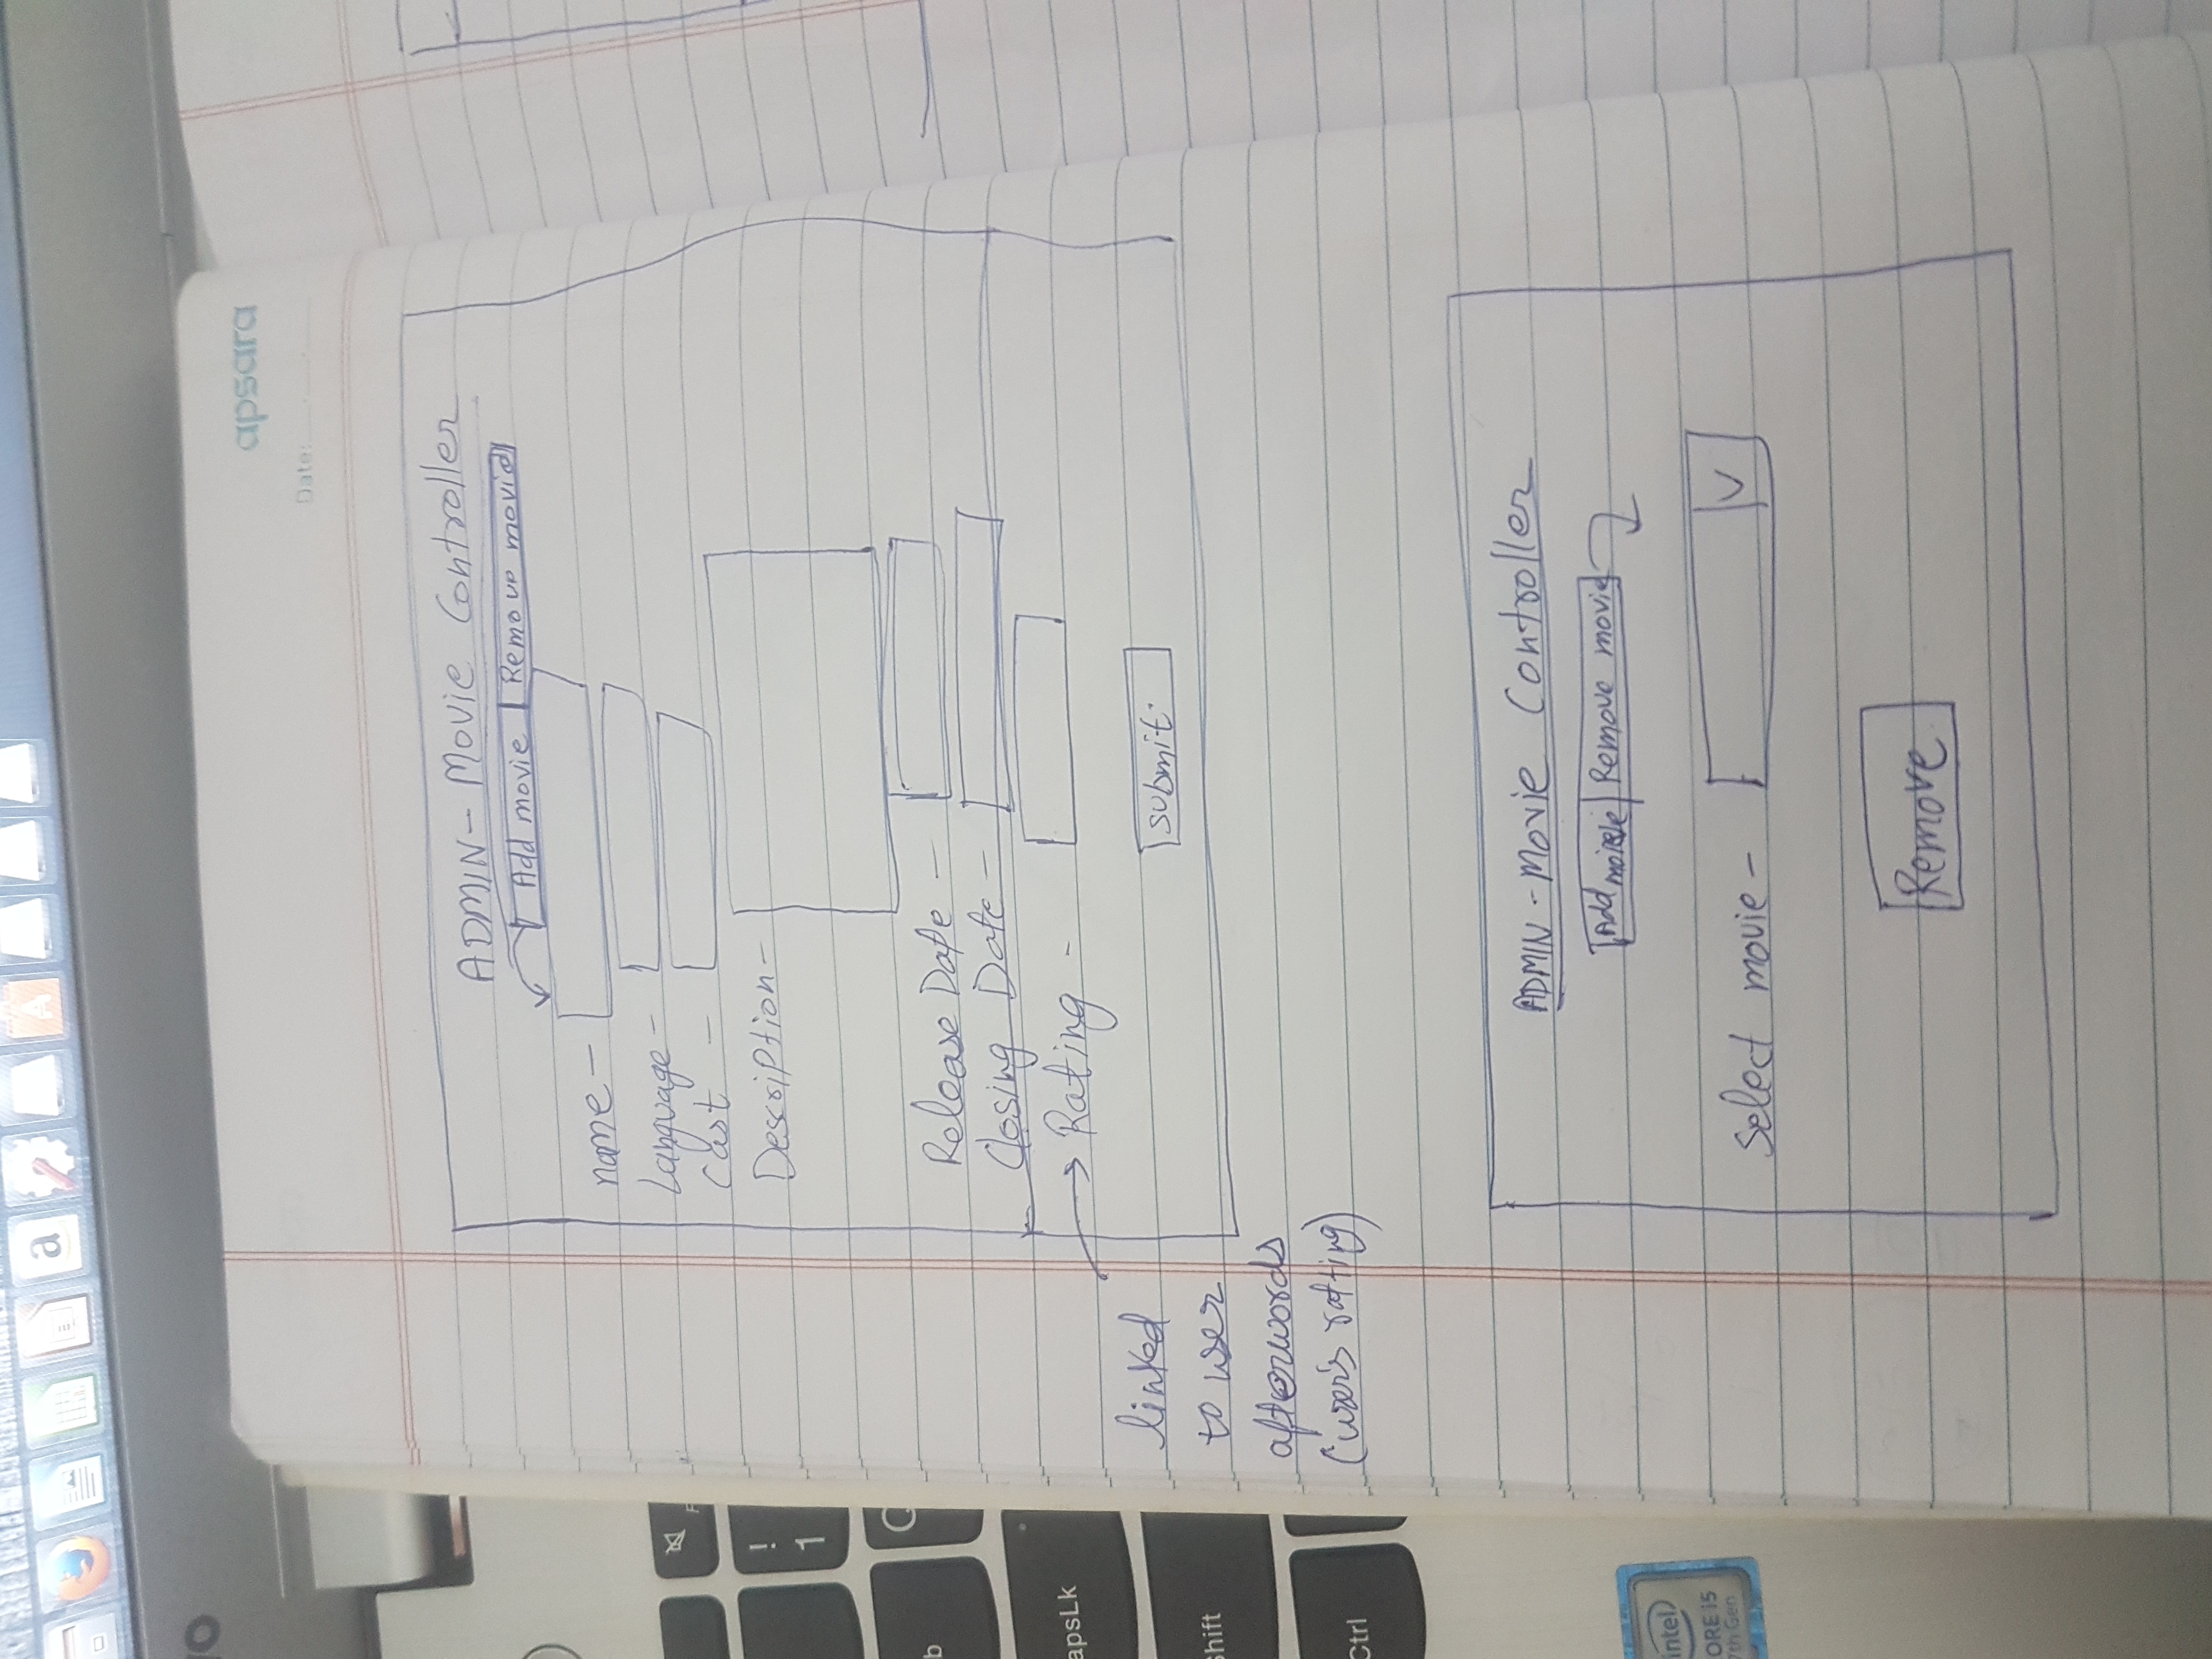 a
A
vo
apsara
Date:
ADMIN - Movie Controller
Add movie | Remove movie
name -
Language -
Cast -
Description -
Release Date -
Closing Date -
Rating -
linked
to user
afterwords
(user's ratting)
submit
ADMIN - Movie Controller
Add movie | Remove movie
Select movie -
V
Remove
F
!
1
Q
b
apsLk
Shift
Ctrl
intel
CORE i5
7th Gen